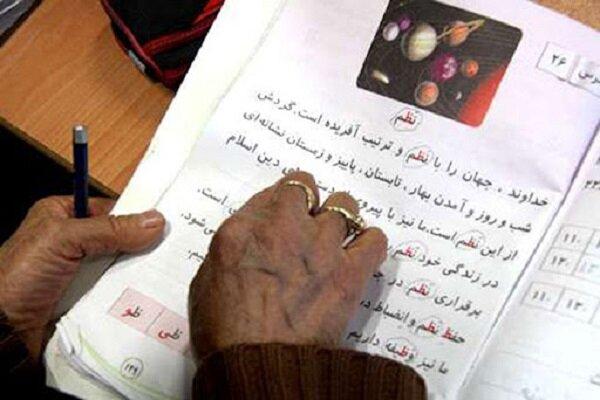 نظم
خداوند، جهان را با نظم و ترتیب آفریده است. گردش
شب و روز و آمدن بهار، تابستان، پاییز و زمستان نشانه‌ای
از این نظم است. ما نیز با پیروی دین اسلام
در زندگی خود نظم
برقراری نظم در
حفظ نظم و انضباط
ما نیز وظیفه داریم
است.
ظی ظو
۱۴۹
درس ۲۶
۱۱۰
۱۳۰
۱۱۰ ۱۳۰